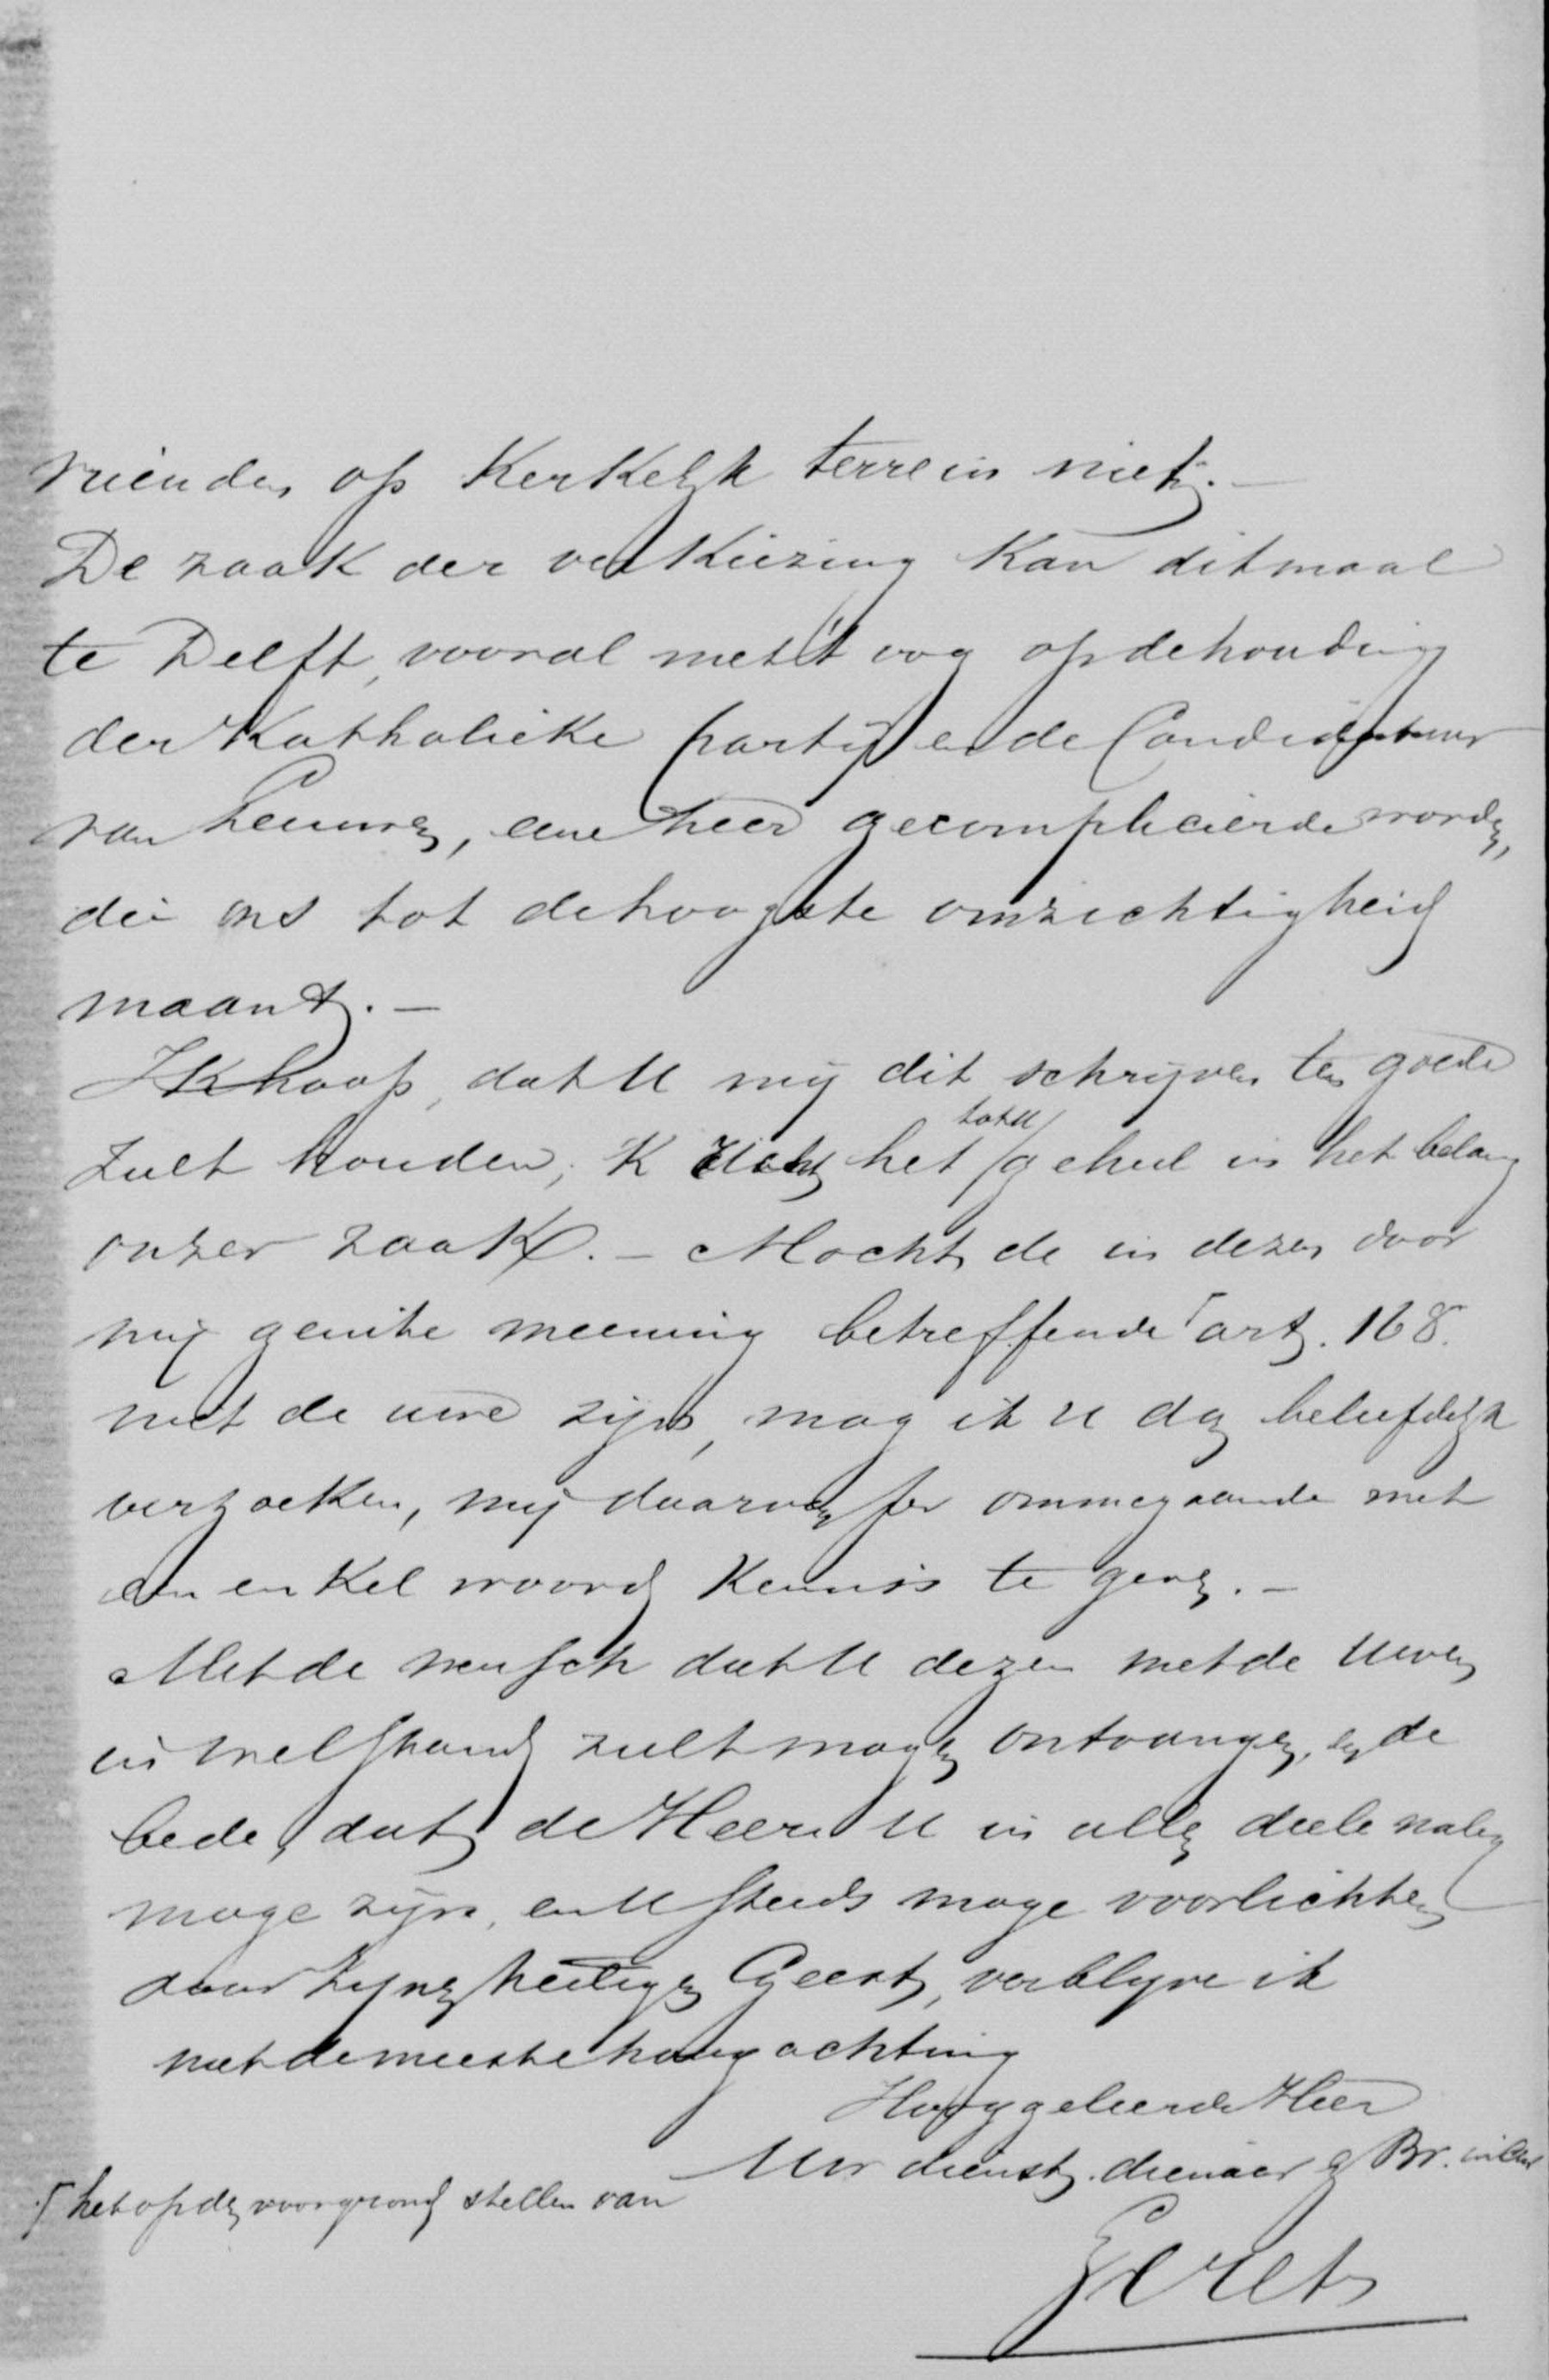 vrienden op Kerkelijk terrein niet. —
De zaak der verkiezing kan ditmaal
te Delft, vooral met 't oog op de houding
der Katholieke partij en de Candidatuur
van Leeuwen, eene heel gecompliceerde worden,
die ons tot de hoogste omzichtigheid
maant. —
Ik hoop, dat U mij dit schrijven ten goede
zult houden, 'K het geheel in het belang
onzer zaak. — Mocht de in dezen door
mij geuite meening betreffende ⌈ art. 168.
niet de uwe zijn, mag ik U dan beleefdelijk
verzoeken, mij daarvan per ommegaande met
een enkel woord kennis te geven. —
Met de wensch dat U dezen met de Uwen
in welstand zult mogen ontvangen, en de
bede, dat de Heere U in alle deele nabij
moge zijn, en U steeds moge voorlichten
door Zijnen heiligen Geest, verblijve ik
met de meeste hoogachting
Hooggeleerde Heer
Uw dienstv. dienaar en Br. in
⌈ het op den voorgrond stellen van